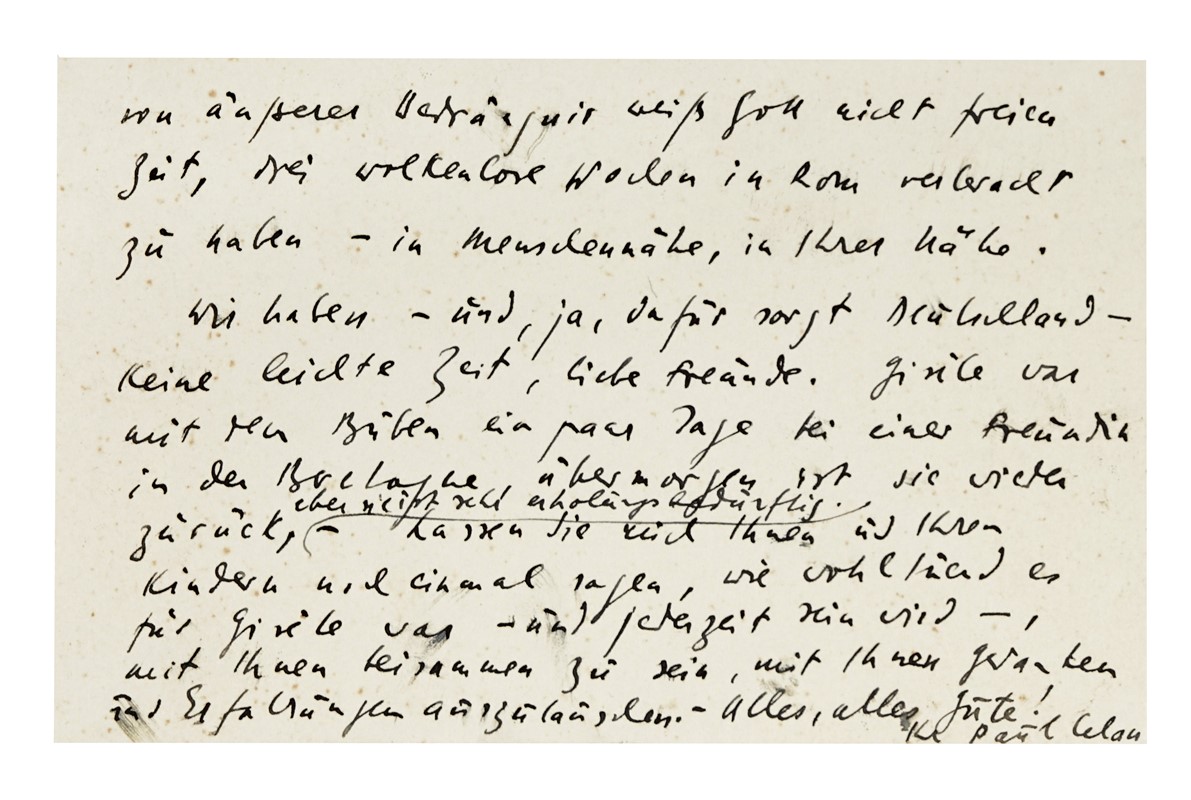 von äußerer Bedrängnis weiß Gott nicht freien
Zeit, drei wolkenlose Wochen in Rom verbracht
zu haben – in Menschennähe, in Ihrer Nähe.
Wir haben – und, ja, dafür sorgt Deutschland –
keine leichte Zeit, liebe Freunde. Gisèle war
mit dem Buben ein paar Tage bei einer Freundin
in der Bretagne, übermorgen ist sie wieder
aber nicht sehr erholungsbedürftig.
zurück, – Lassen Sie mich Ihnen und Ihren
Kindern noch einmal sagen, wie wohltuend es
für Gisèle war – und jederzeit sein wird –,
mit Ihnen beisammen zu sein, mit Ihnen Gedanken
und Erfahrungen auszutauschen. – Alles, alles Gute!
Paul Celan